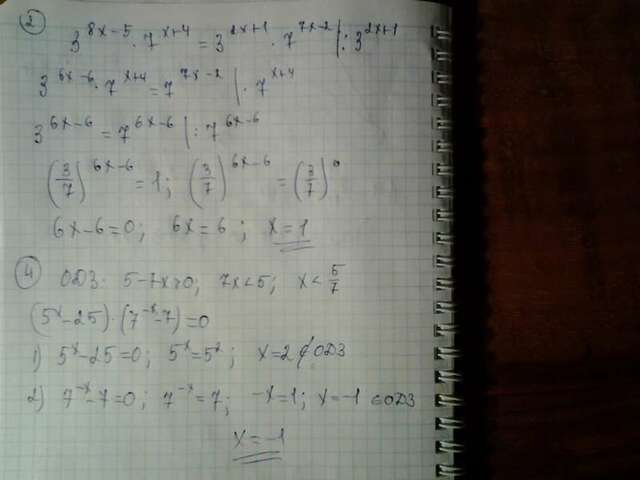 ② 3^{8x-5} · 7^{x+4} = 3^{2x+1} · 7^{7x-2} | : 3^{2x+1}
3^{6x-6} · 7^{x+4} = 7^{7x-2} | : 7^{x+4}
3^{6x-6} = 7^{6x-6} | : 7^{6x-6}
(3/7)^{6x-6} = 1; (3/7)^{6x-6} = (3/7)^0
6x-6=0; 6x=6; x=1
④ ОДЗ: 5-7x>0; 7x<5; x< 5/7
(5^x-25)·(7^{-x}-7)=0
1) 5^x-25=0; 5^x=5^2; x=2 ∉ ОДЗ
2) 7^{-x}-7=0; 7^{-x}=7; -x=1; x=-1 ∈ ОДЗ
x=-1